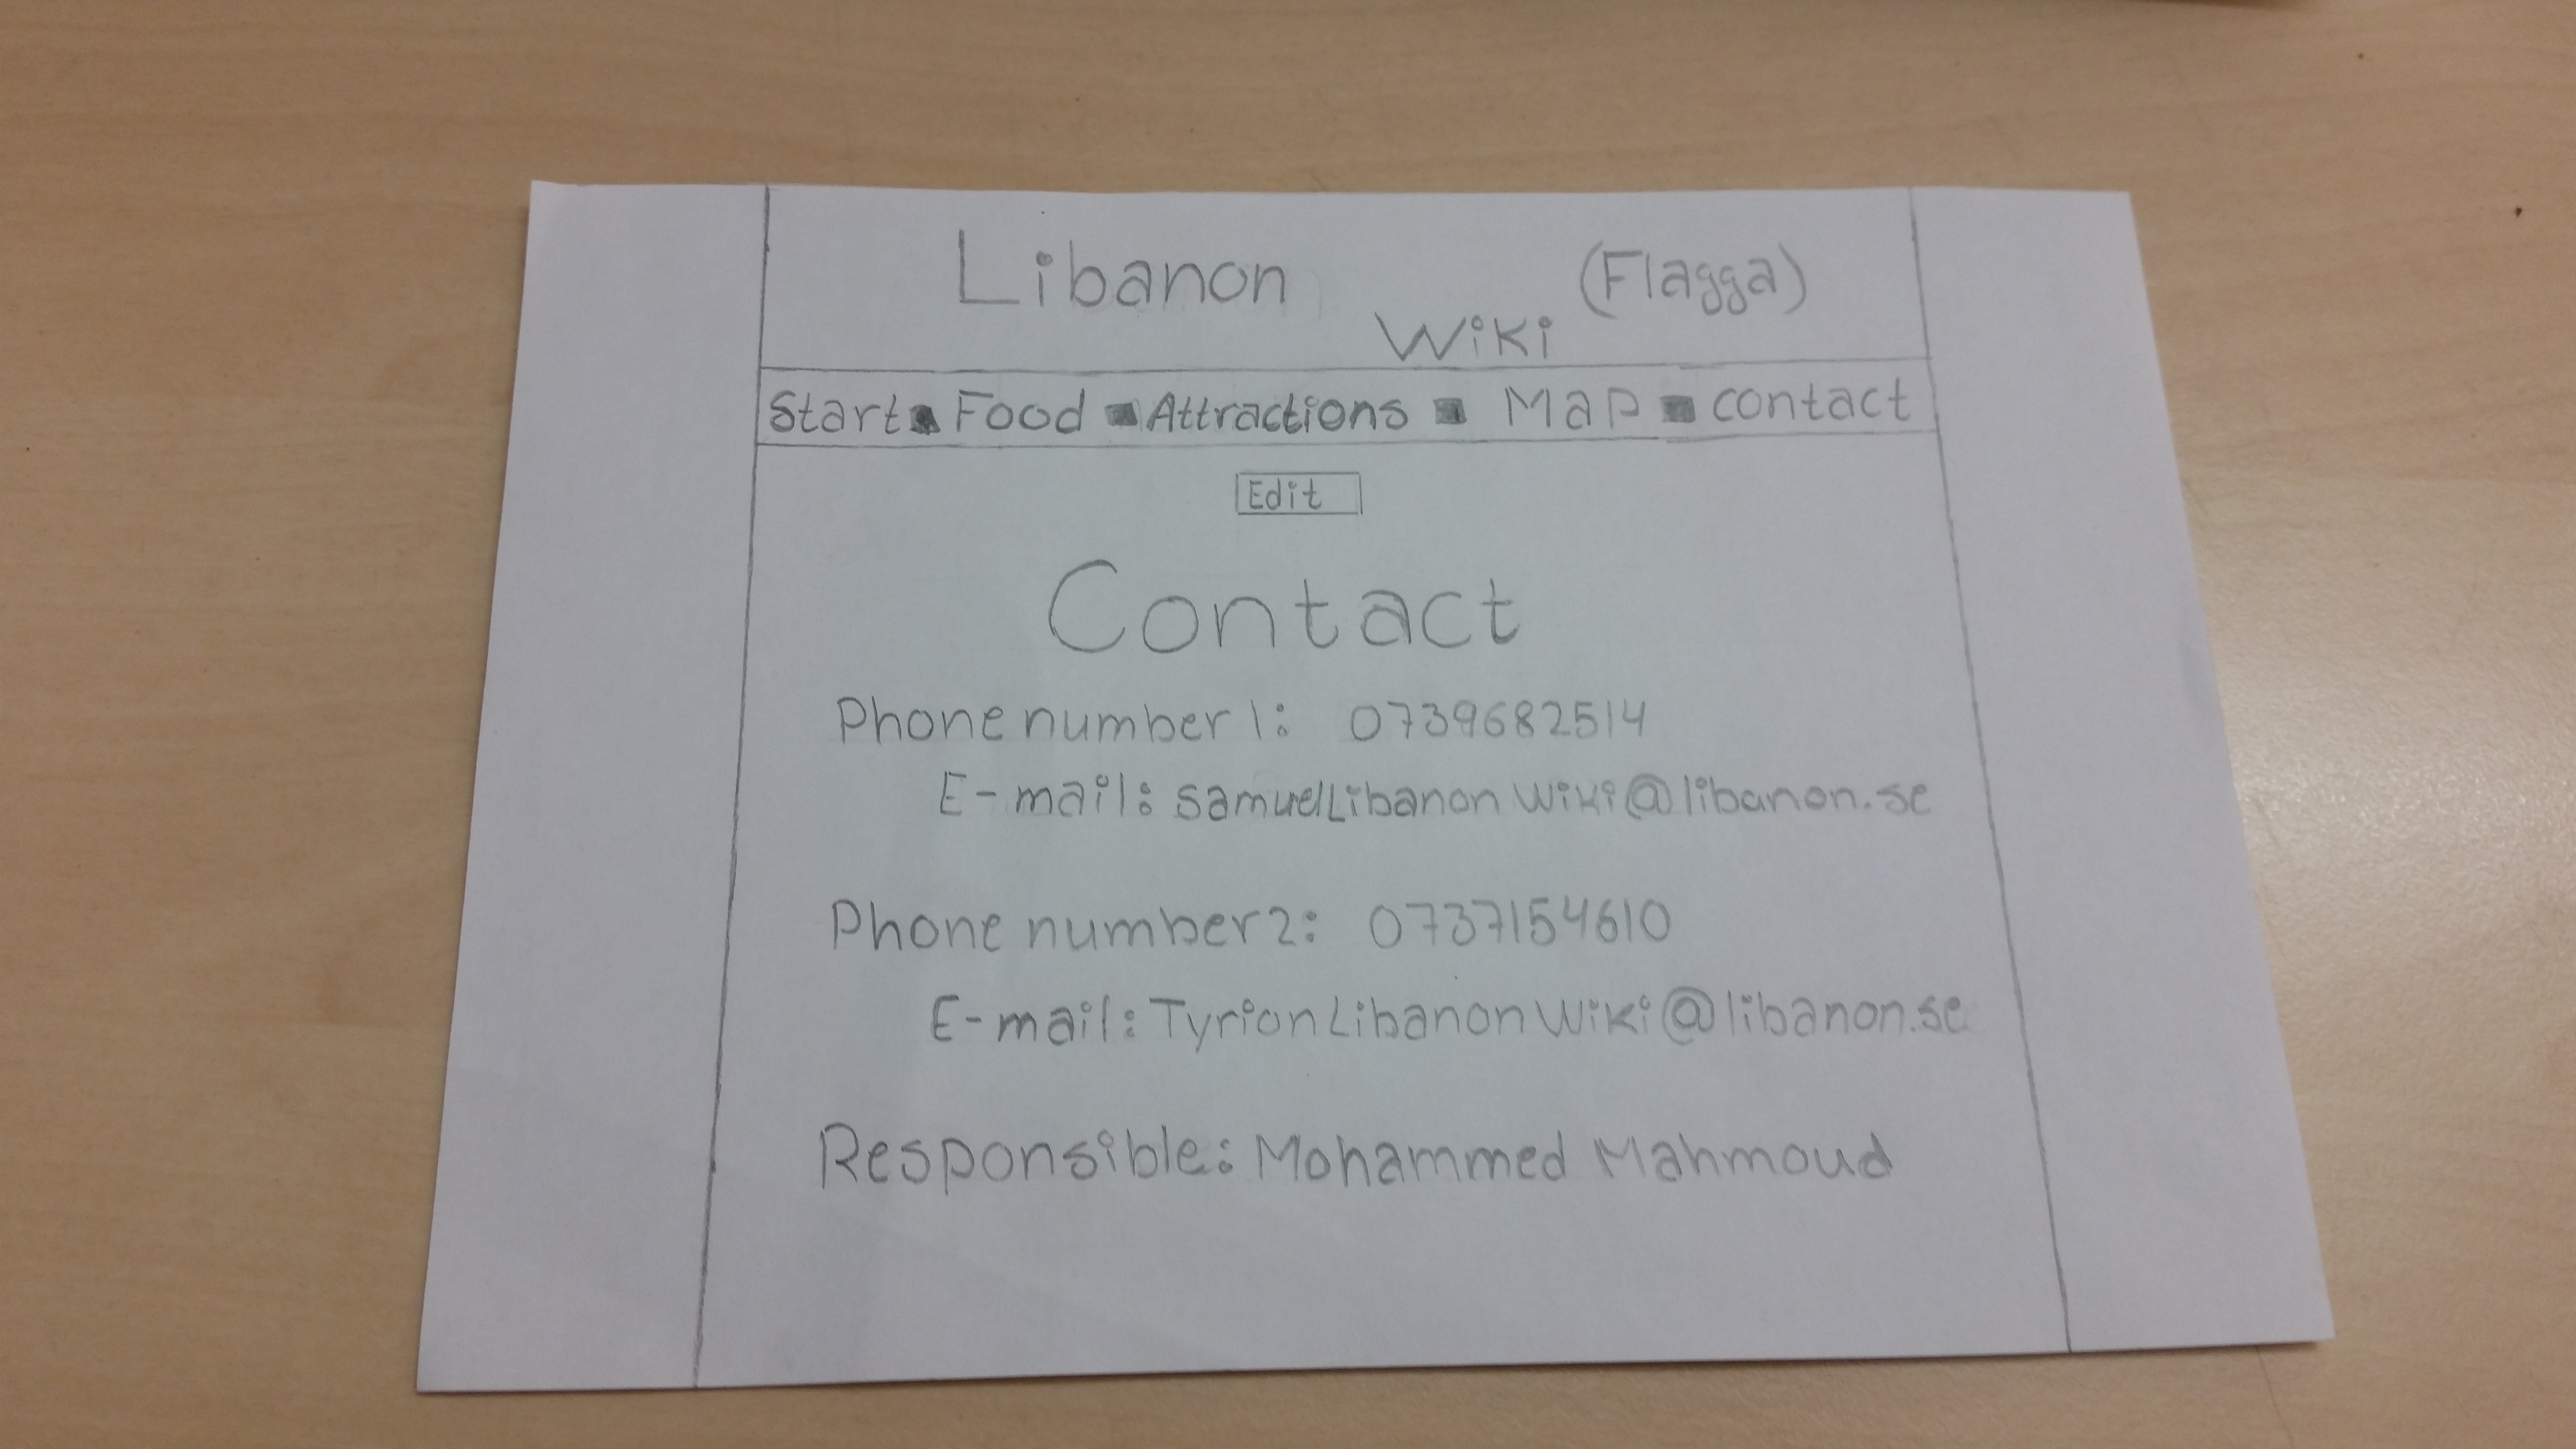 Libanon (Flagga)
Wiki
Start ▪ Food ▪ Attractions ▪ Map ▪ contact
Edit
Contact
Phone number 1: 0739682514
E-mail: SamuelLibanonWiki@libanon.se
Phone number 2: 0737154610
E-mail: TyrionLibanonWiki@libanon.se
Responsible: Mohammed Mahmoud